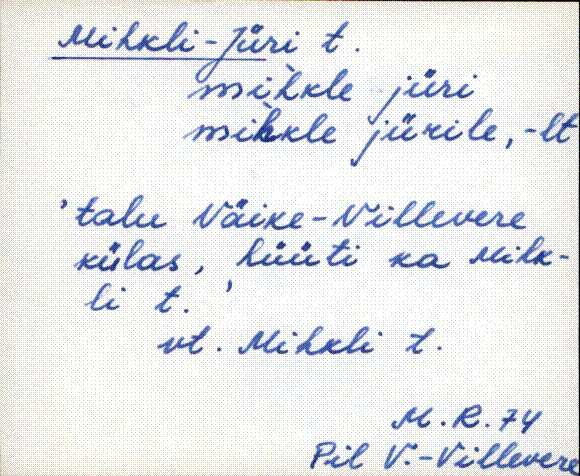 Mihkli-Jüri t.
mìhkle jüri
mìhkle jürile, -lt
'talu Väike-Villevere
külas, hüüti ka Mihk-
li t.'
vt. Mihkli t.
M.R.74
Pil V.-Villevere